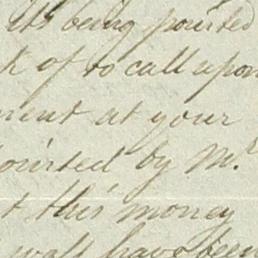 its being pointed
k of to call upon
ment at your
pointed by Mr
t this money
well have been